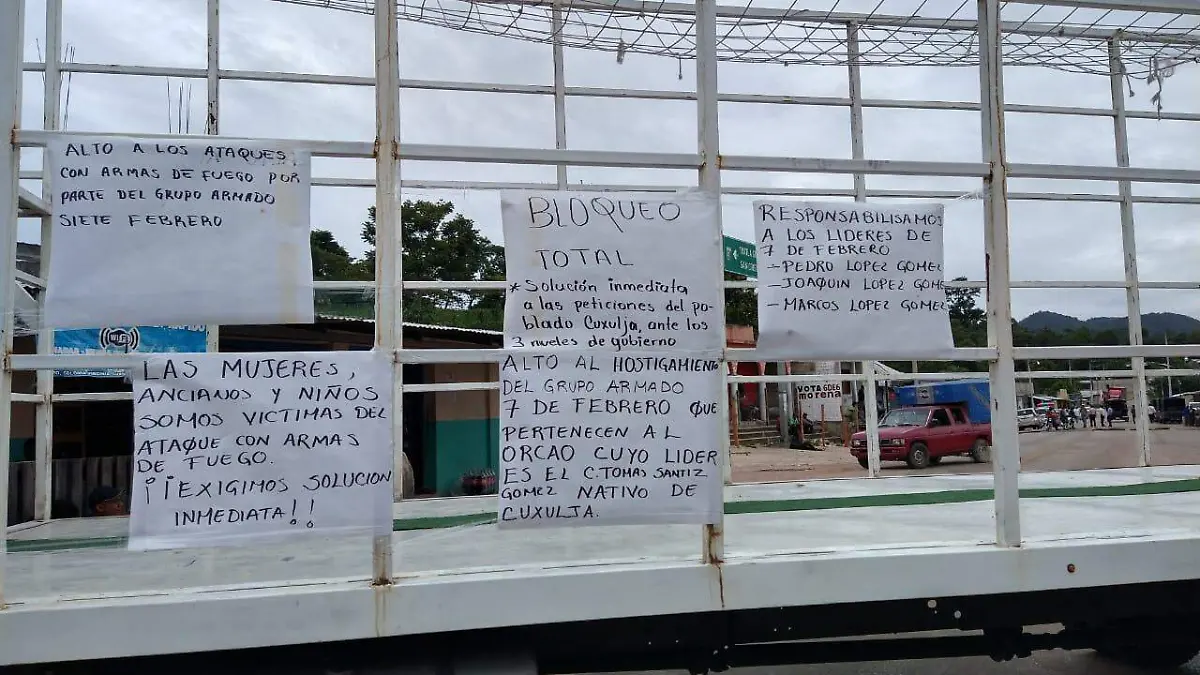 ALTO A LOS ATAQUES,
CON ARMAS DE FUEGO POR
PARTE DEL GRUPO ARMADO
SIETE FEBRERO
LAS MUJERES,
ANCIANOS Y NIÑOS
SOMOS VICTIMAS DEL
ATAQUE CON ARMAS
DE FUEGO.
¡¡EXIGIMOS SOLUCION
INMEDIATA!!
BLOQUEO
TOTAL
* Solución inmediata
a las peticiones del po-
blado Cuxulja, ante los
3 niveles de gobierno
ALTO AL HOSTIGAMIENTO
DEL GRUPO ARMADO
7 DE FEBRERO QUE
PERTENECEN AL
ORCAO CUYO LIDER
ES EL C.TOMAS SANTIZ
GOMEZ NATIVO DE
CUXULJA.
RESPONSABILISAMOS
A LOS LIDERES DE
7 DE FEBRERO
- PEDRO LOPEZ GOMEZ
- JOAQUIN LOPEZ GOME
- MARCOS LOPEZ GOMEZ
VOTA 6DE6
morena